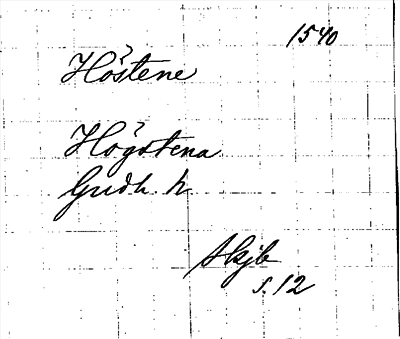 1540
Höstene
Högstena
Gudh. h
Skjb
s. 12